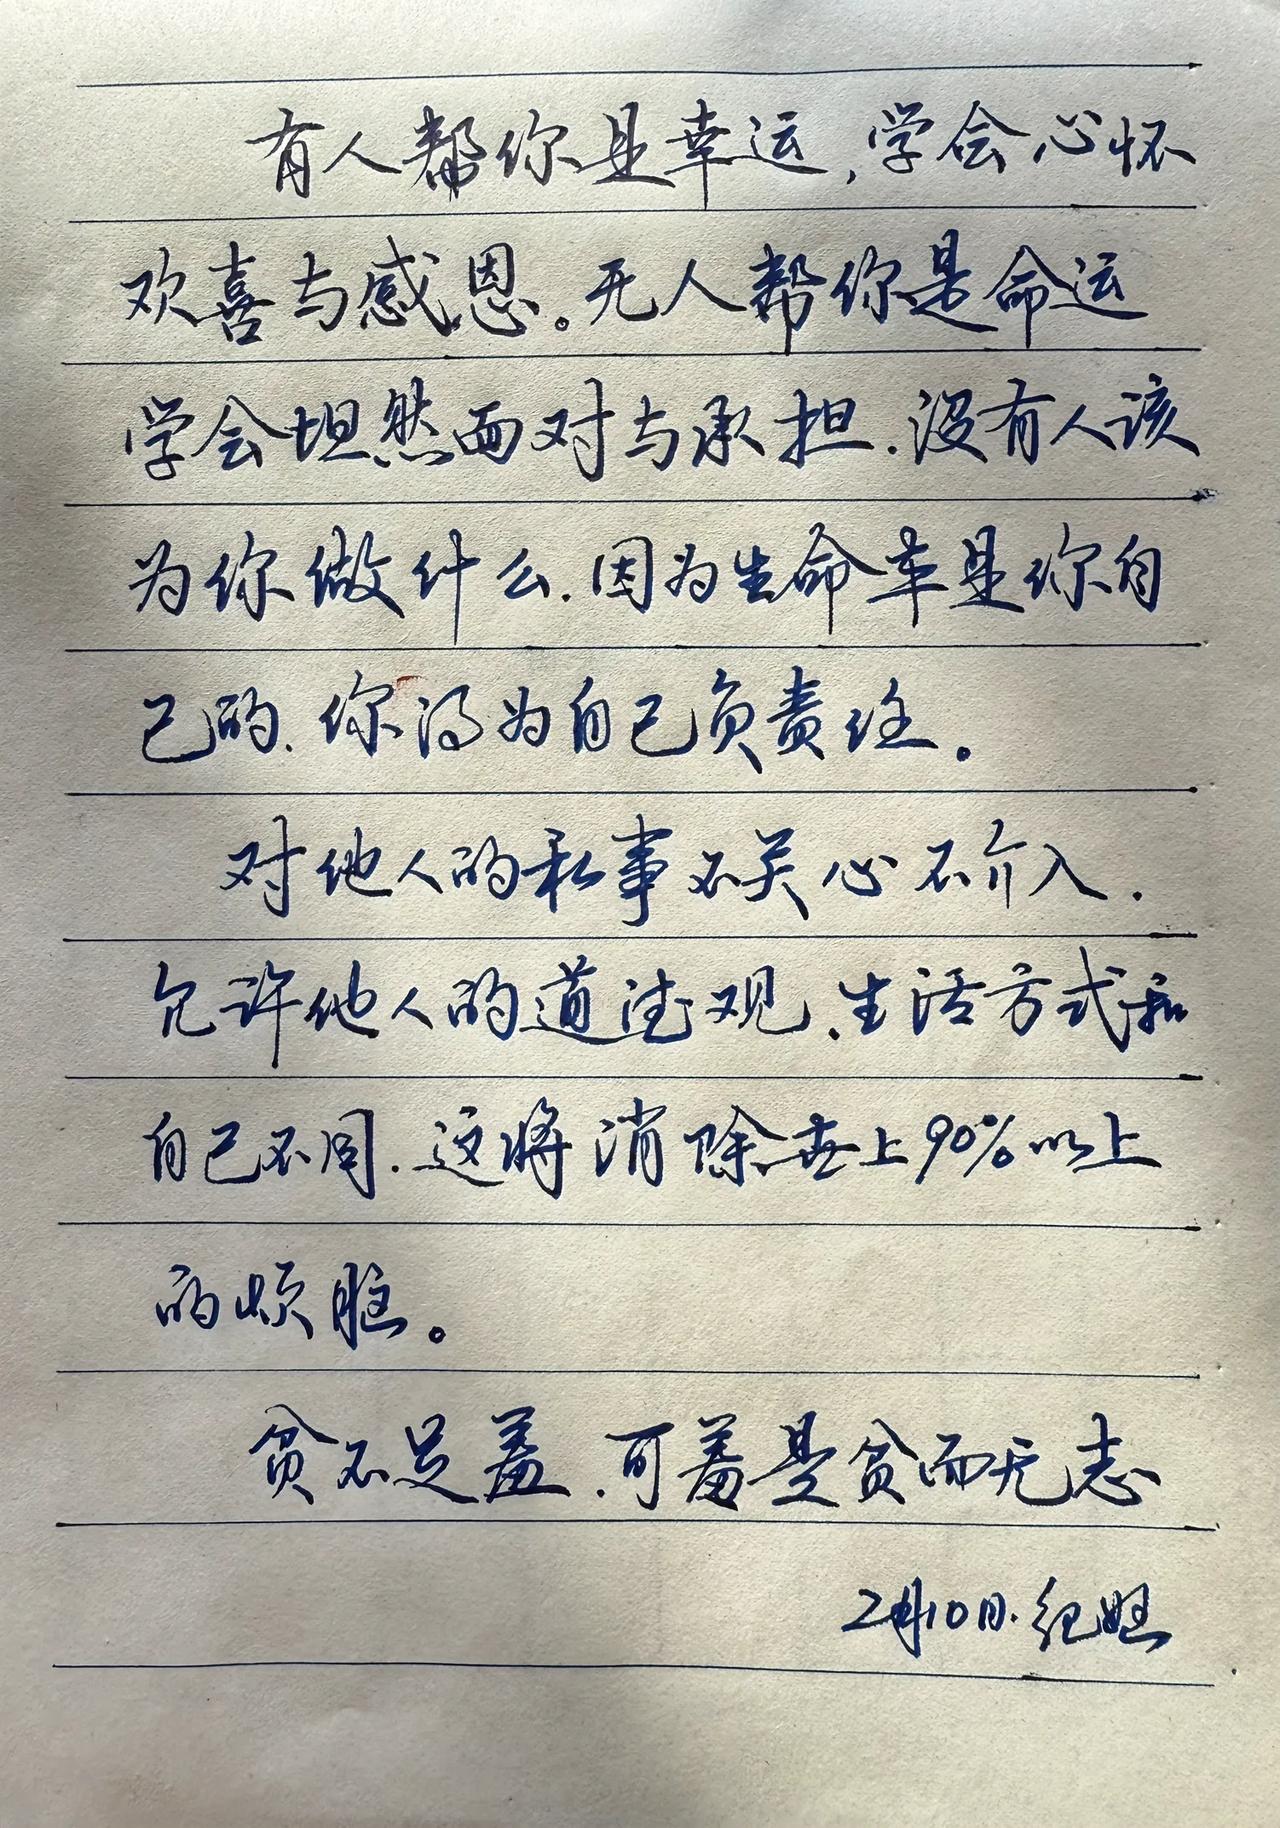 有人帮你是幸运,学会心怀
欢喜与感恩。无人帮你是命运
学会坦然面对与承担.没有人该
为你做什么.因为生命本是你自
己的.你得为自己负责任。
对他人的私事不关心不介入.
允许他人的道德观.生活方式和
自己不同.这将消除世上90%以上
的烦脑。
贫不足羞.可羞是贫而无志
2月10日.纪